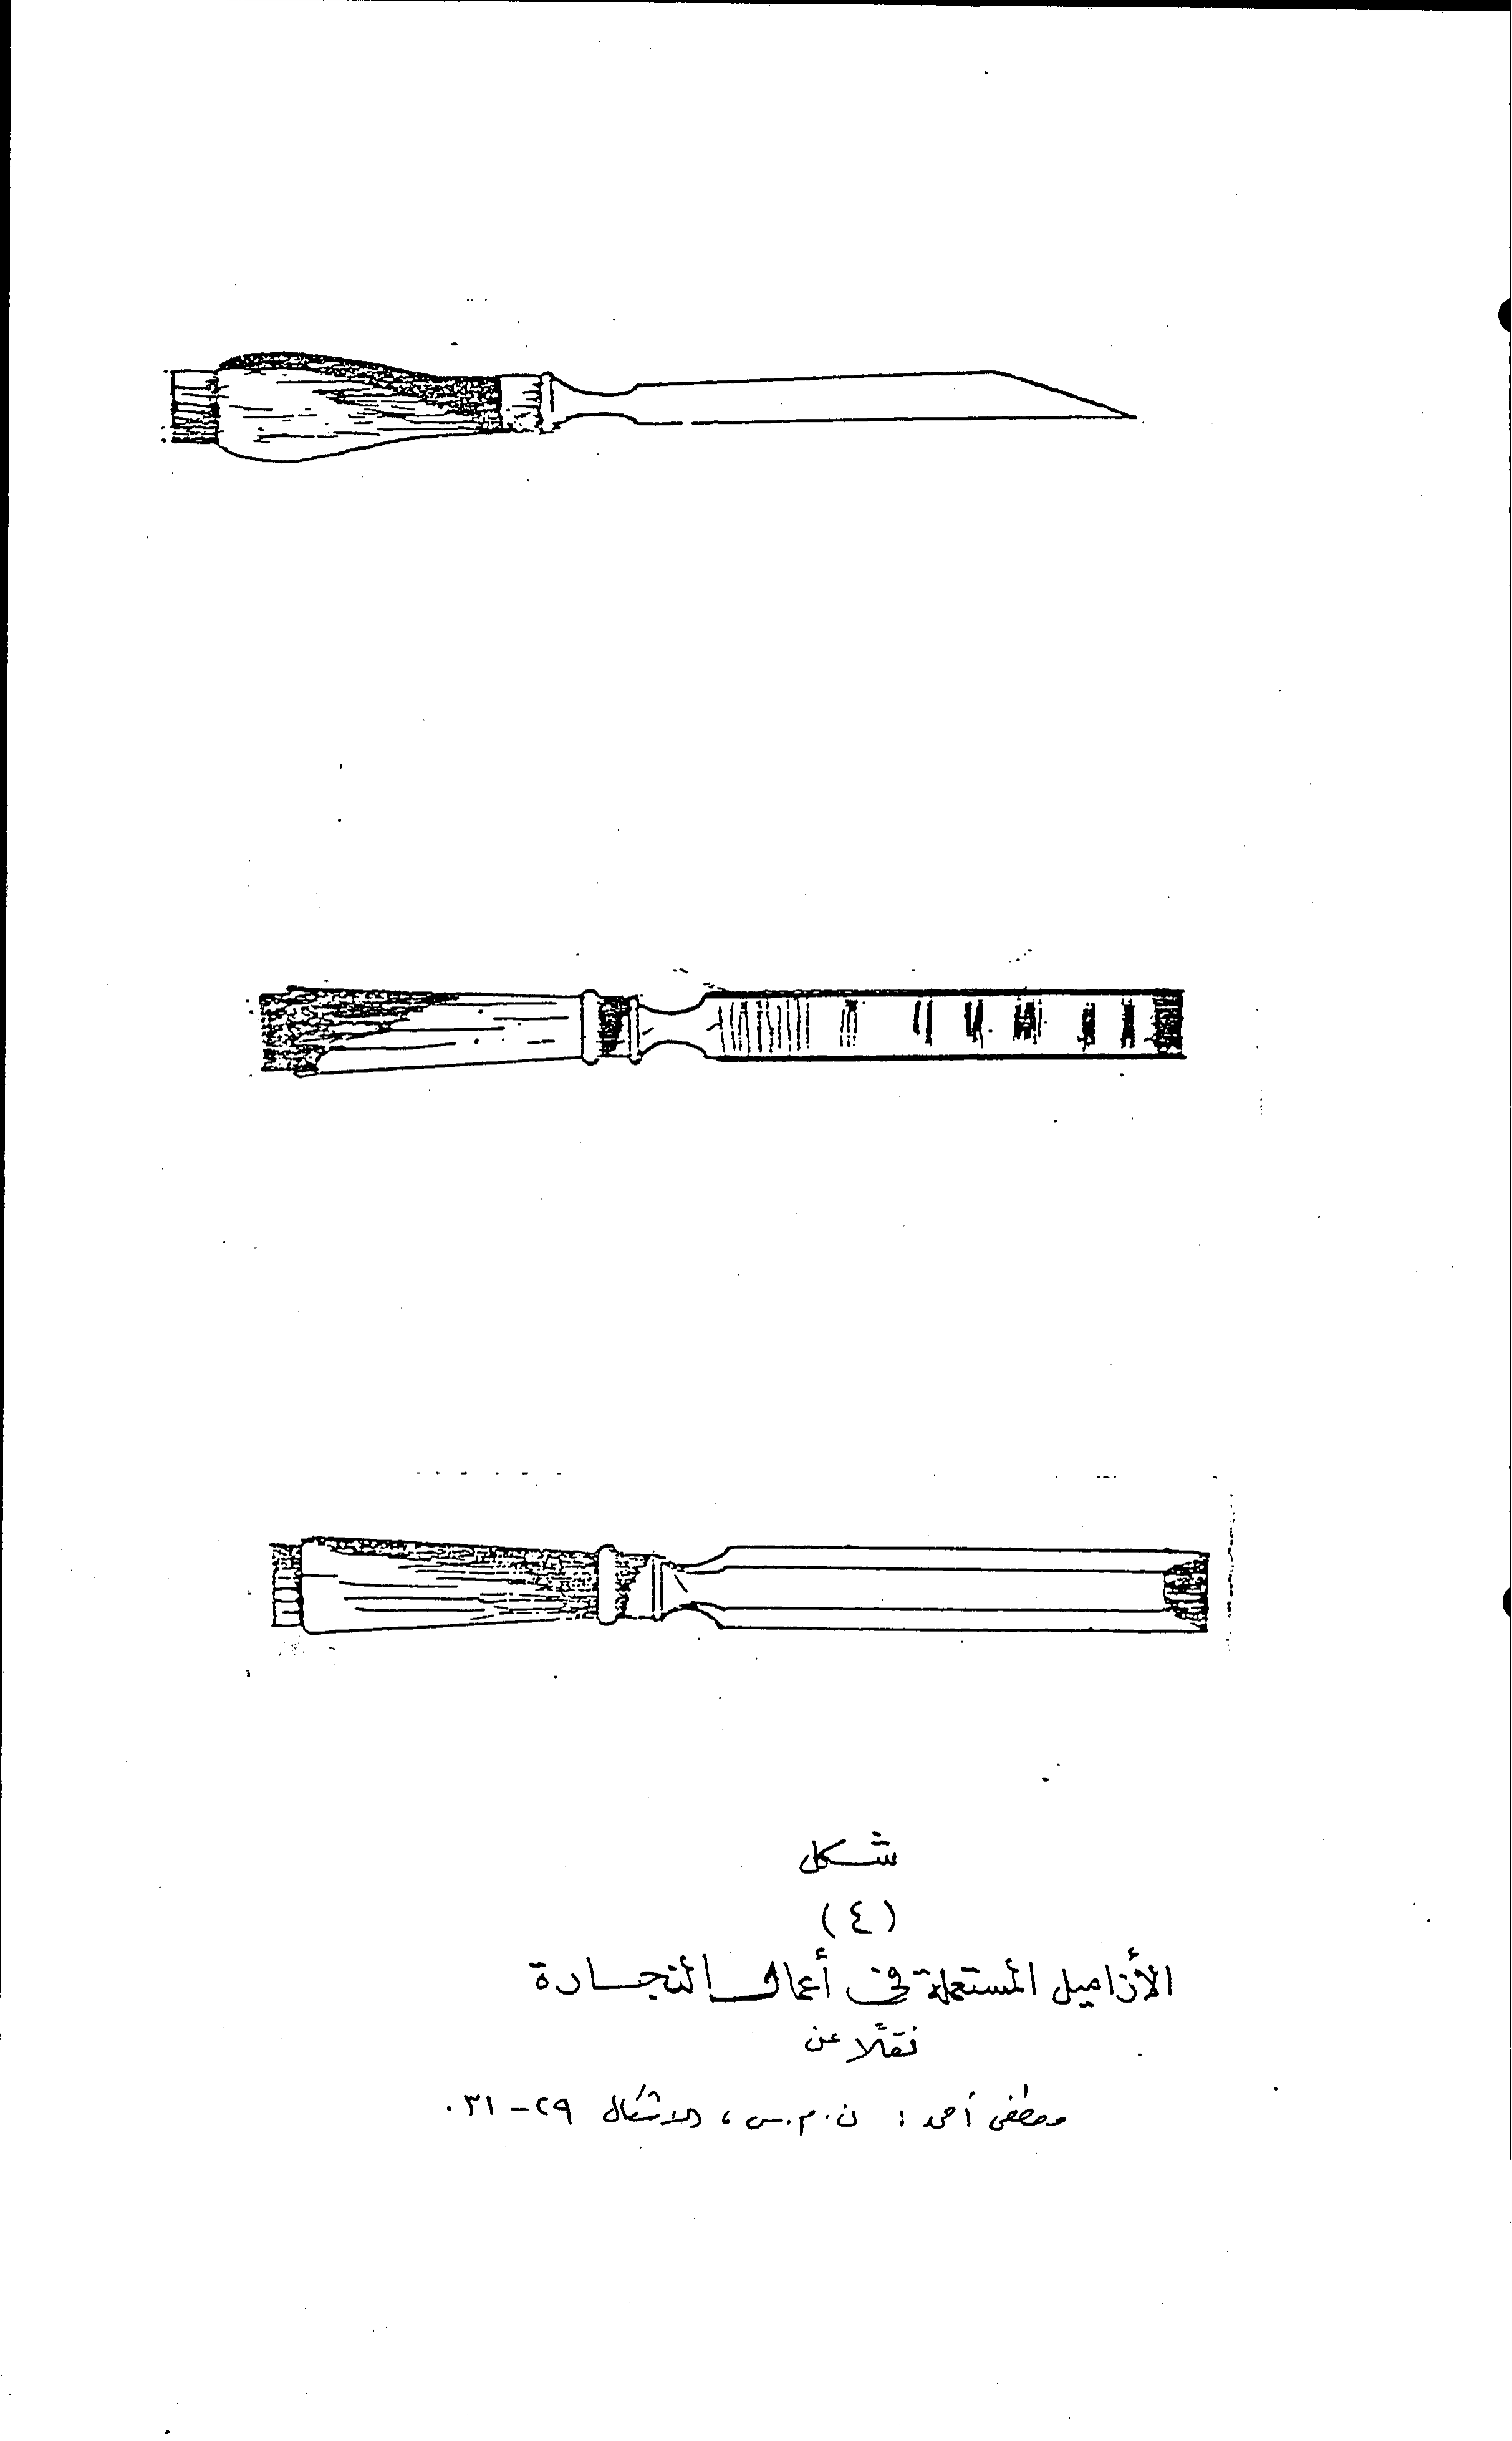 شكل
(٤)
الأزاميل المستعملة في أعمال النجارة
نقلًا عن
مصطفى أحمد : ن.م.س ، الاشكال ٢٩-٣١.